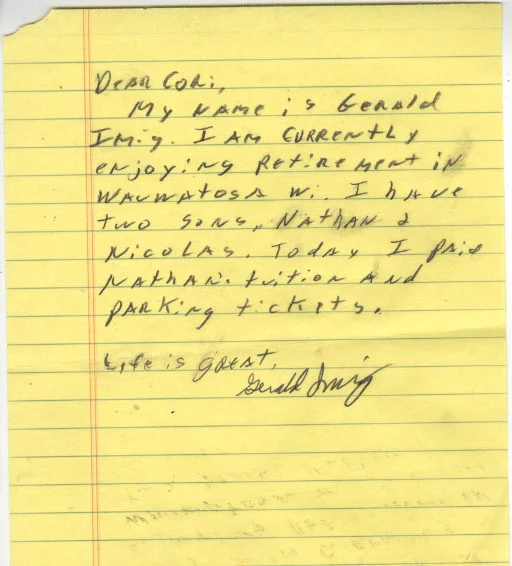 Dear Cori,
My name is Gerald
Imig. I am currently
enjoying retirement in
Wauwatosa Wi. I have
two sons, Nathan &
Nicolas. Today I paid
Nathan's tuition and
parking tickets.
Life is great,
Gerald Imig